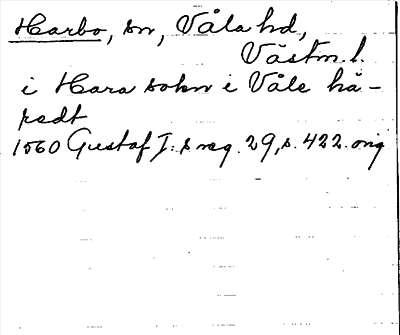 Harbo, sn, Våla hd,
Västm. l.
i Hara sokn i Våle hä-
redt
1560 Gustaf I:s reg. 29, s. 422. orig